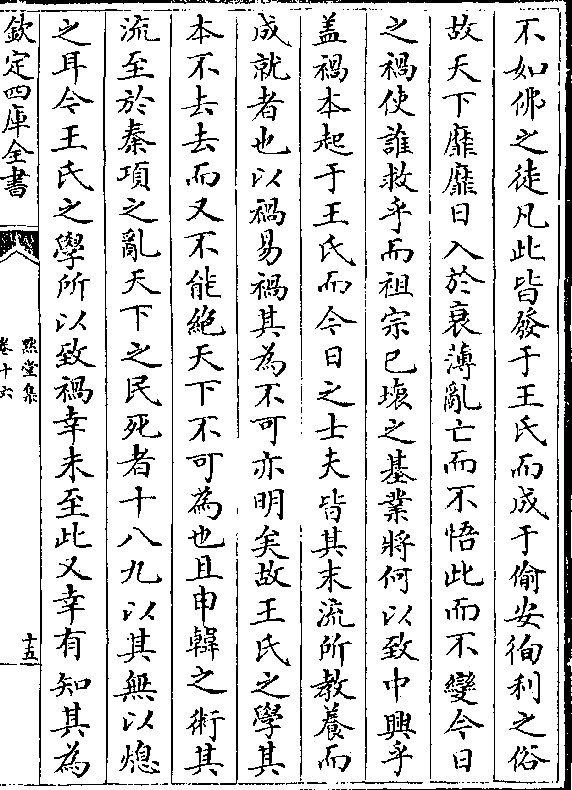 不如佛之徒凡此皆發于王氏而成于偷安徇利之俗
故天下靡靡日入於衰薄亂亡而不悟此而不變今日
之禍使誰救乎而祖宗已壊之基業將何以致中興乎
盖禍本起于王氏而今日之士夫皆其末流所教養而
成就者也以禍易禍其為不可亦明矣故王氏之學其
本不去去而又不能絶天下不可為也且申韓之術其
流至於秦項之亂天下之民死者十八九以其無以熄
之耳今王氏之學所以致禍幸未至此又幸有知其為
欽定四庫全書
黙堂集
卷十六
十五